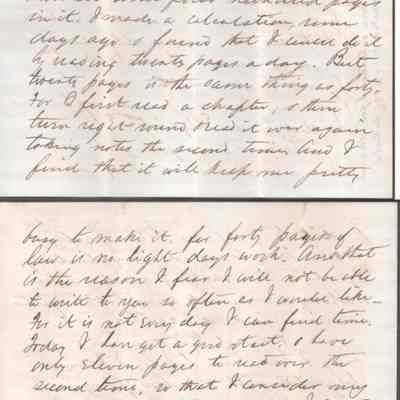 hundred pages
in it. I made a calculation some
days ago & found that I could do it
by reading twenty pages a day. But
twenty pages is the same thing as forty.
For I first read a chapter, & then
turn right round & read it over again
taking notes the second time, And I
find that it will keep me pretty
busy to make it, for forty pages of
law is no light days work. And that
is the reason I fear I will not be able
to write to you so often as I would like–
For it is not every day I can find time.
Today I have got a good start. I have
only eleven pages to read over the
second time, so that I consider my